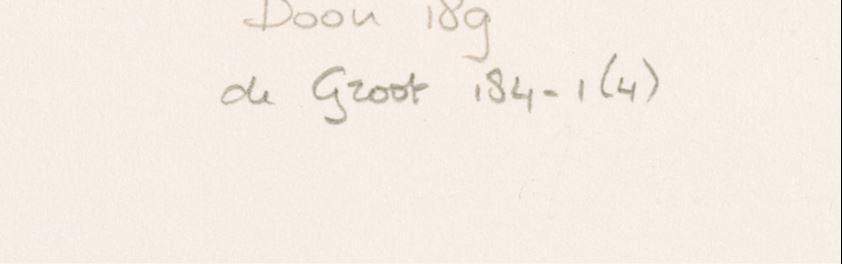 Doon 189
de Groot 184-1(4)